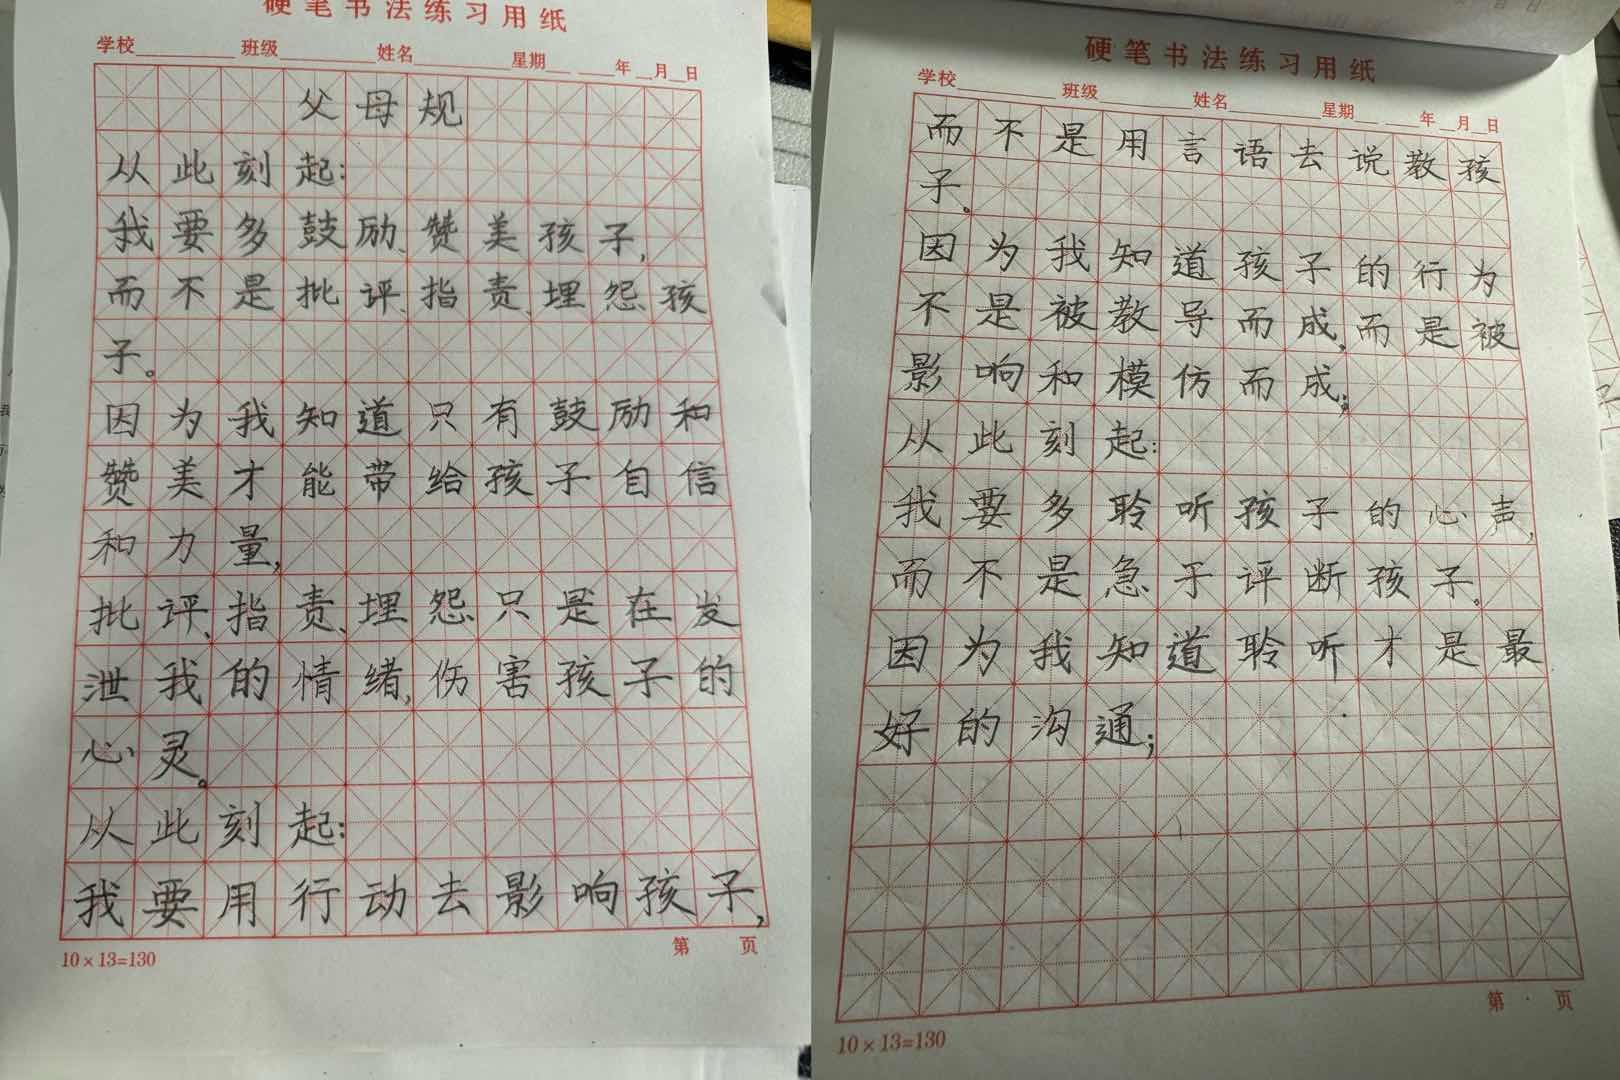 硬笔书法练习用纸
学校 班级 姓名 星期 年 月 日
父母规
从此刻起:
我要多鼓励、赞美孩子,
而不是批评、指责、埋怨孩
子。
因为我知道只有鼓励和
赞美才能带给孩子自信
和力量,
批评、指责、埋怨、只是在发
泄我的情绪,伤害孩子的
心灵。
从此刻起:
我要用行动去影响孩子,
10×13=130
第 页
硬笔书法练习用纸
学校 班级 姓名 星期 年 月 日
而不是用言语去说教孩
子。
因为我知道孩子的行为
不是被教导而成,而是被
影响和模仿而成;
从此刻起:
我要多聆听孩子的心声,
而不是急于评断孩子。
因为我知道聆听才是最
好的沟通;
10×13=130
第 页